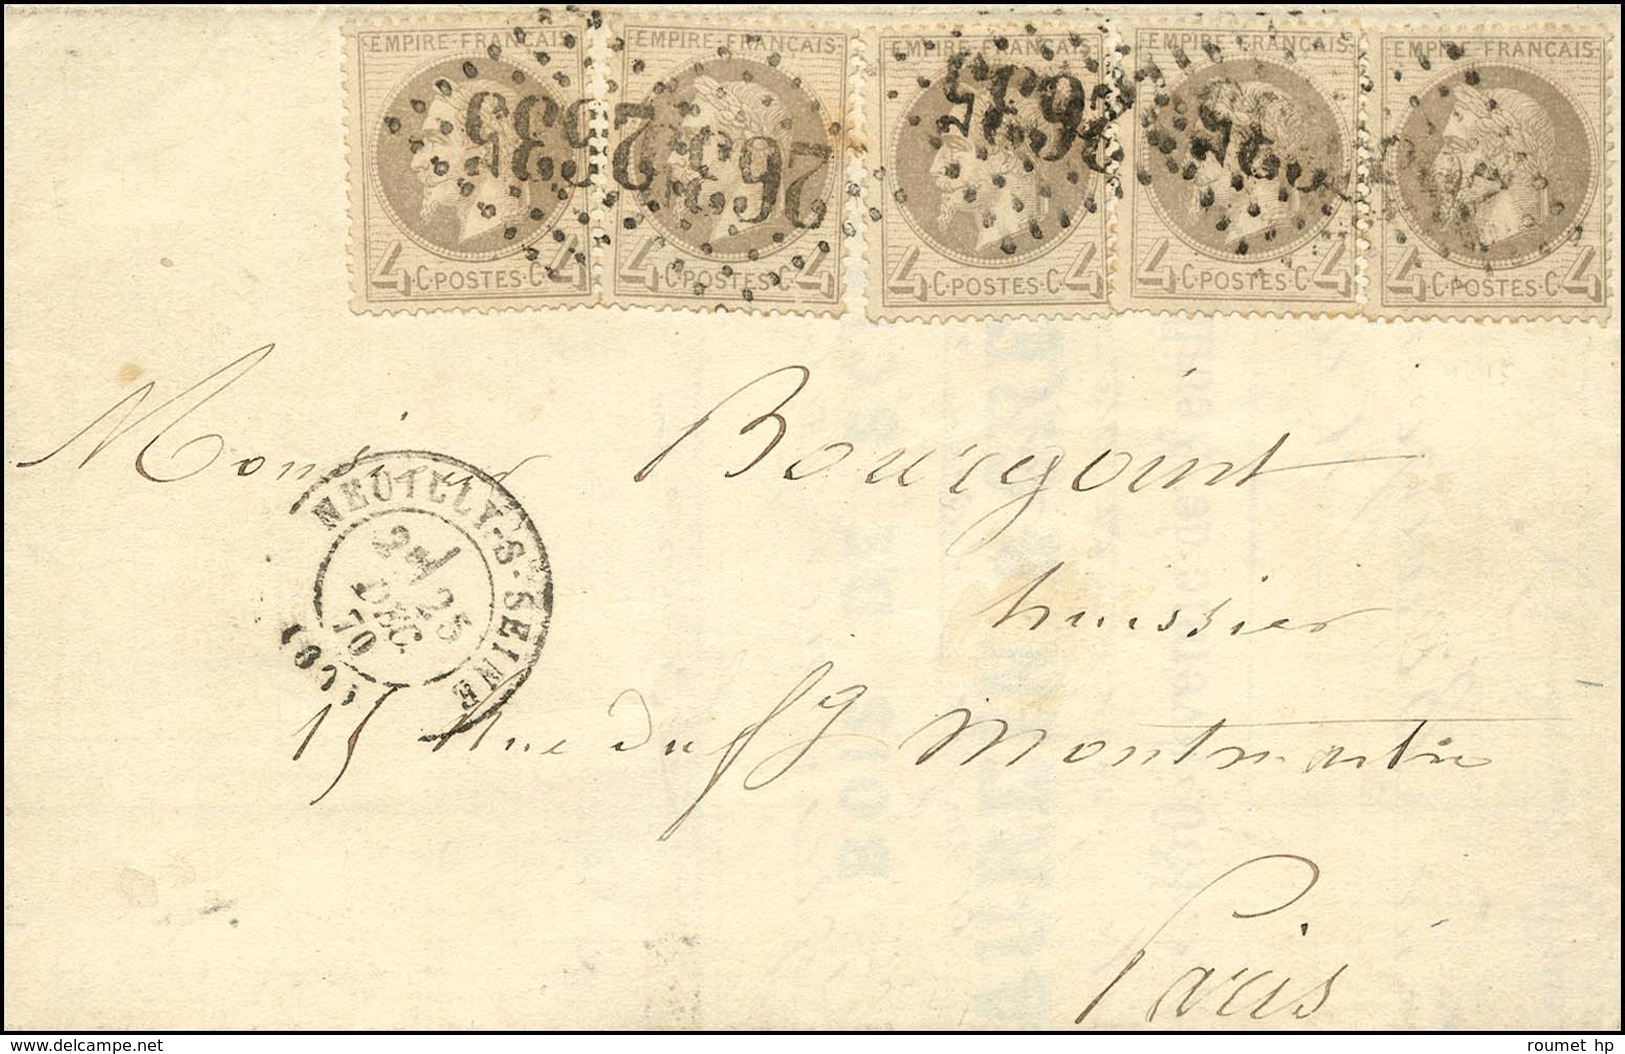 EMPIRE-FRANÇAIS EMPIRE-FRANÇAIS EMPIRE-FRANÇAIS EMPIRE-FRANÇAIS EMPIRE-FRANÇAIS
2635 2635
4 C·POSTES·C 4 4 C·POSTES·C 4 4 C·POSTES·C 4 4 C·POSTES·C 4 4 C·POSTES·C 4
Monsieur Bourgoint
NEUILLY-S-SEINE
25
DEC.
70
(60)
huissier
15 Rue du fg Montmartre
Paris
delcampe.net
roumet hp